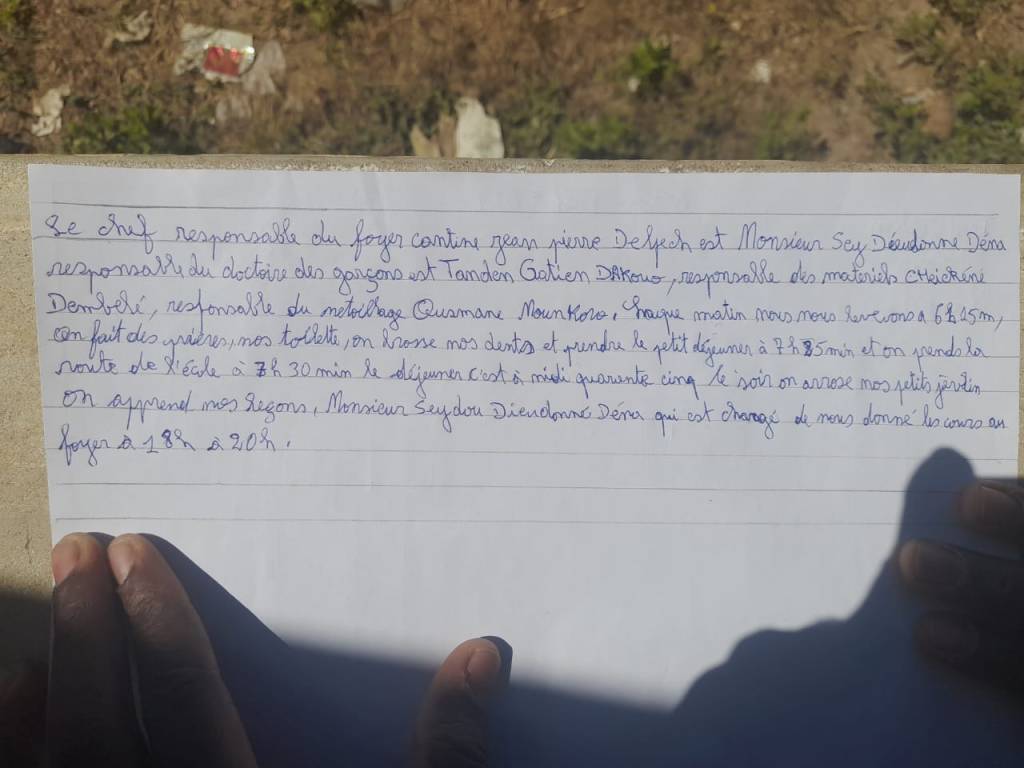 Le chef responsable du foyer cantine jean pierre Delpech est Monsieur Sey Dieudonne Déna
responsable du doctoire des garçons est Tanden Gatien DAKOUO, responsable des materiels CHeickné
Dembélé, responsable du netoillage Ousmane Mounkoro, chaque matin nous nous levevons à 6h15m,
on fait des prières, nos toilette, on brosse nos dents et prendre le petit déjeuner à 7h 25min et on prends la
route de l'école à 7h 30 min le déjeuner c'est à midi quarente cinq le soir on arrose nos petits jardin
On apprend nos leçons, Monsieur Seydou Dieudonné Déna qui est chargé de nous donné les cours au
foyer à 18h à 20h.